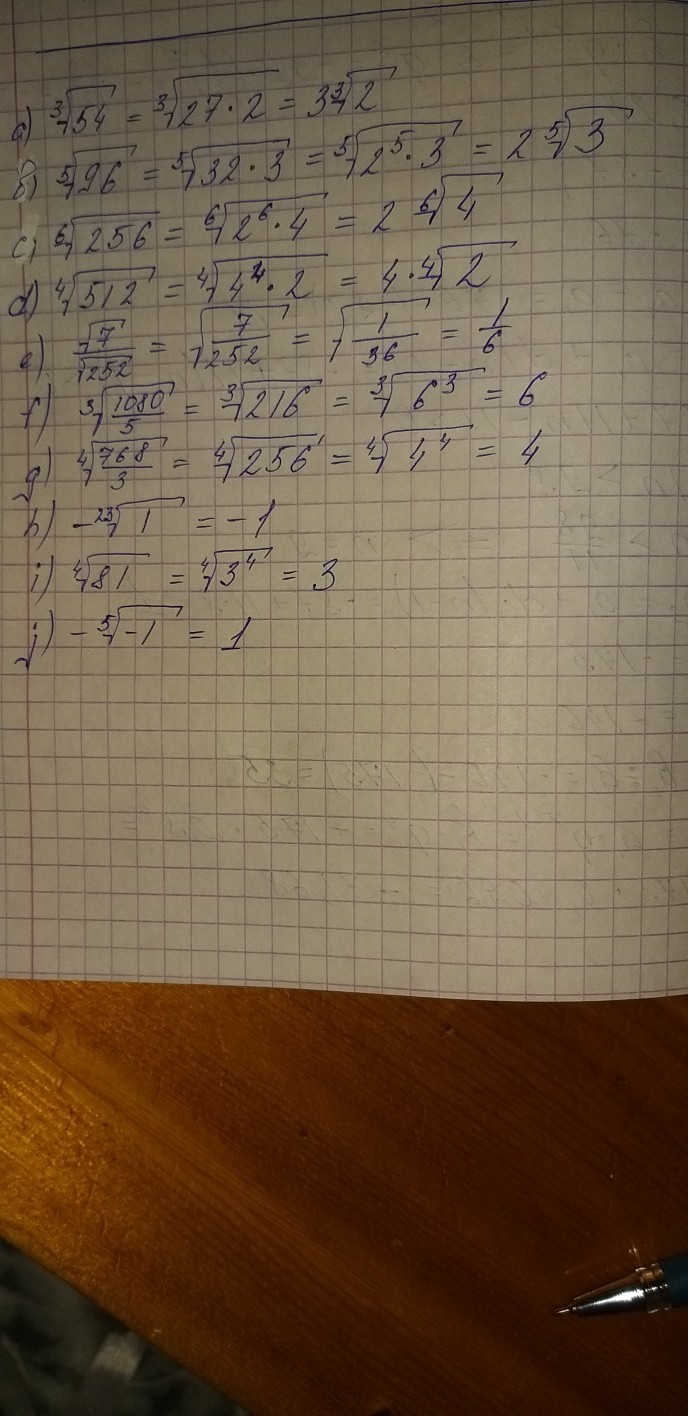 a) ∛54 = ∛(27·2) = 3∛2
b) ⁵√96 = ⁵√(32·3) = ⁵√(2⁵·3) = 2 ⁵√3
c) ⁶√256 = ⁶√(2⁶·4) = 2 ⁶√4
d) ⁴√512 = ⁴√(4⁴·2) = 4·⁴√2
e) √7/√252 = √(7/252) = √(1/36) = 1/6
f) ∛(1080/5) = ∛216 = ∛6³ = 6
g) ⁴√(768/3) = ⁴√256 = ⁴√4⁴ = 4
h) -²³√1 = -1
i) ⁴√81 = ⁴√3⁴ = 3
j) -⁵√-1 = 1